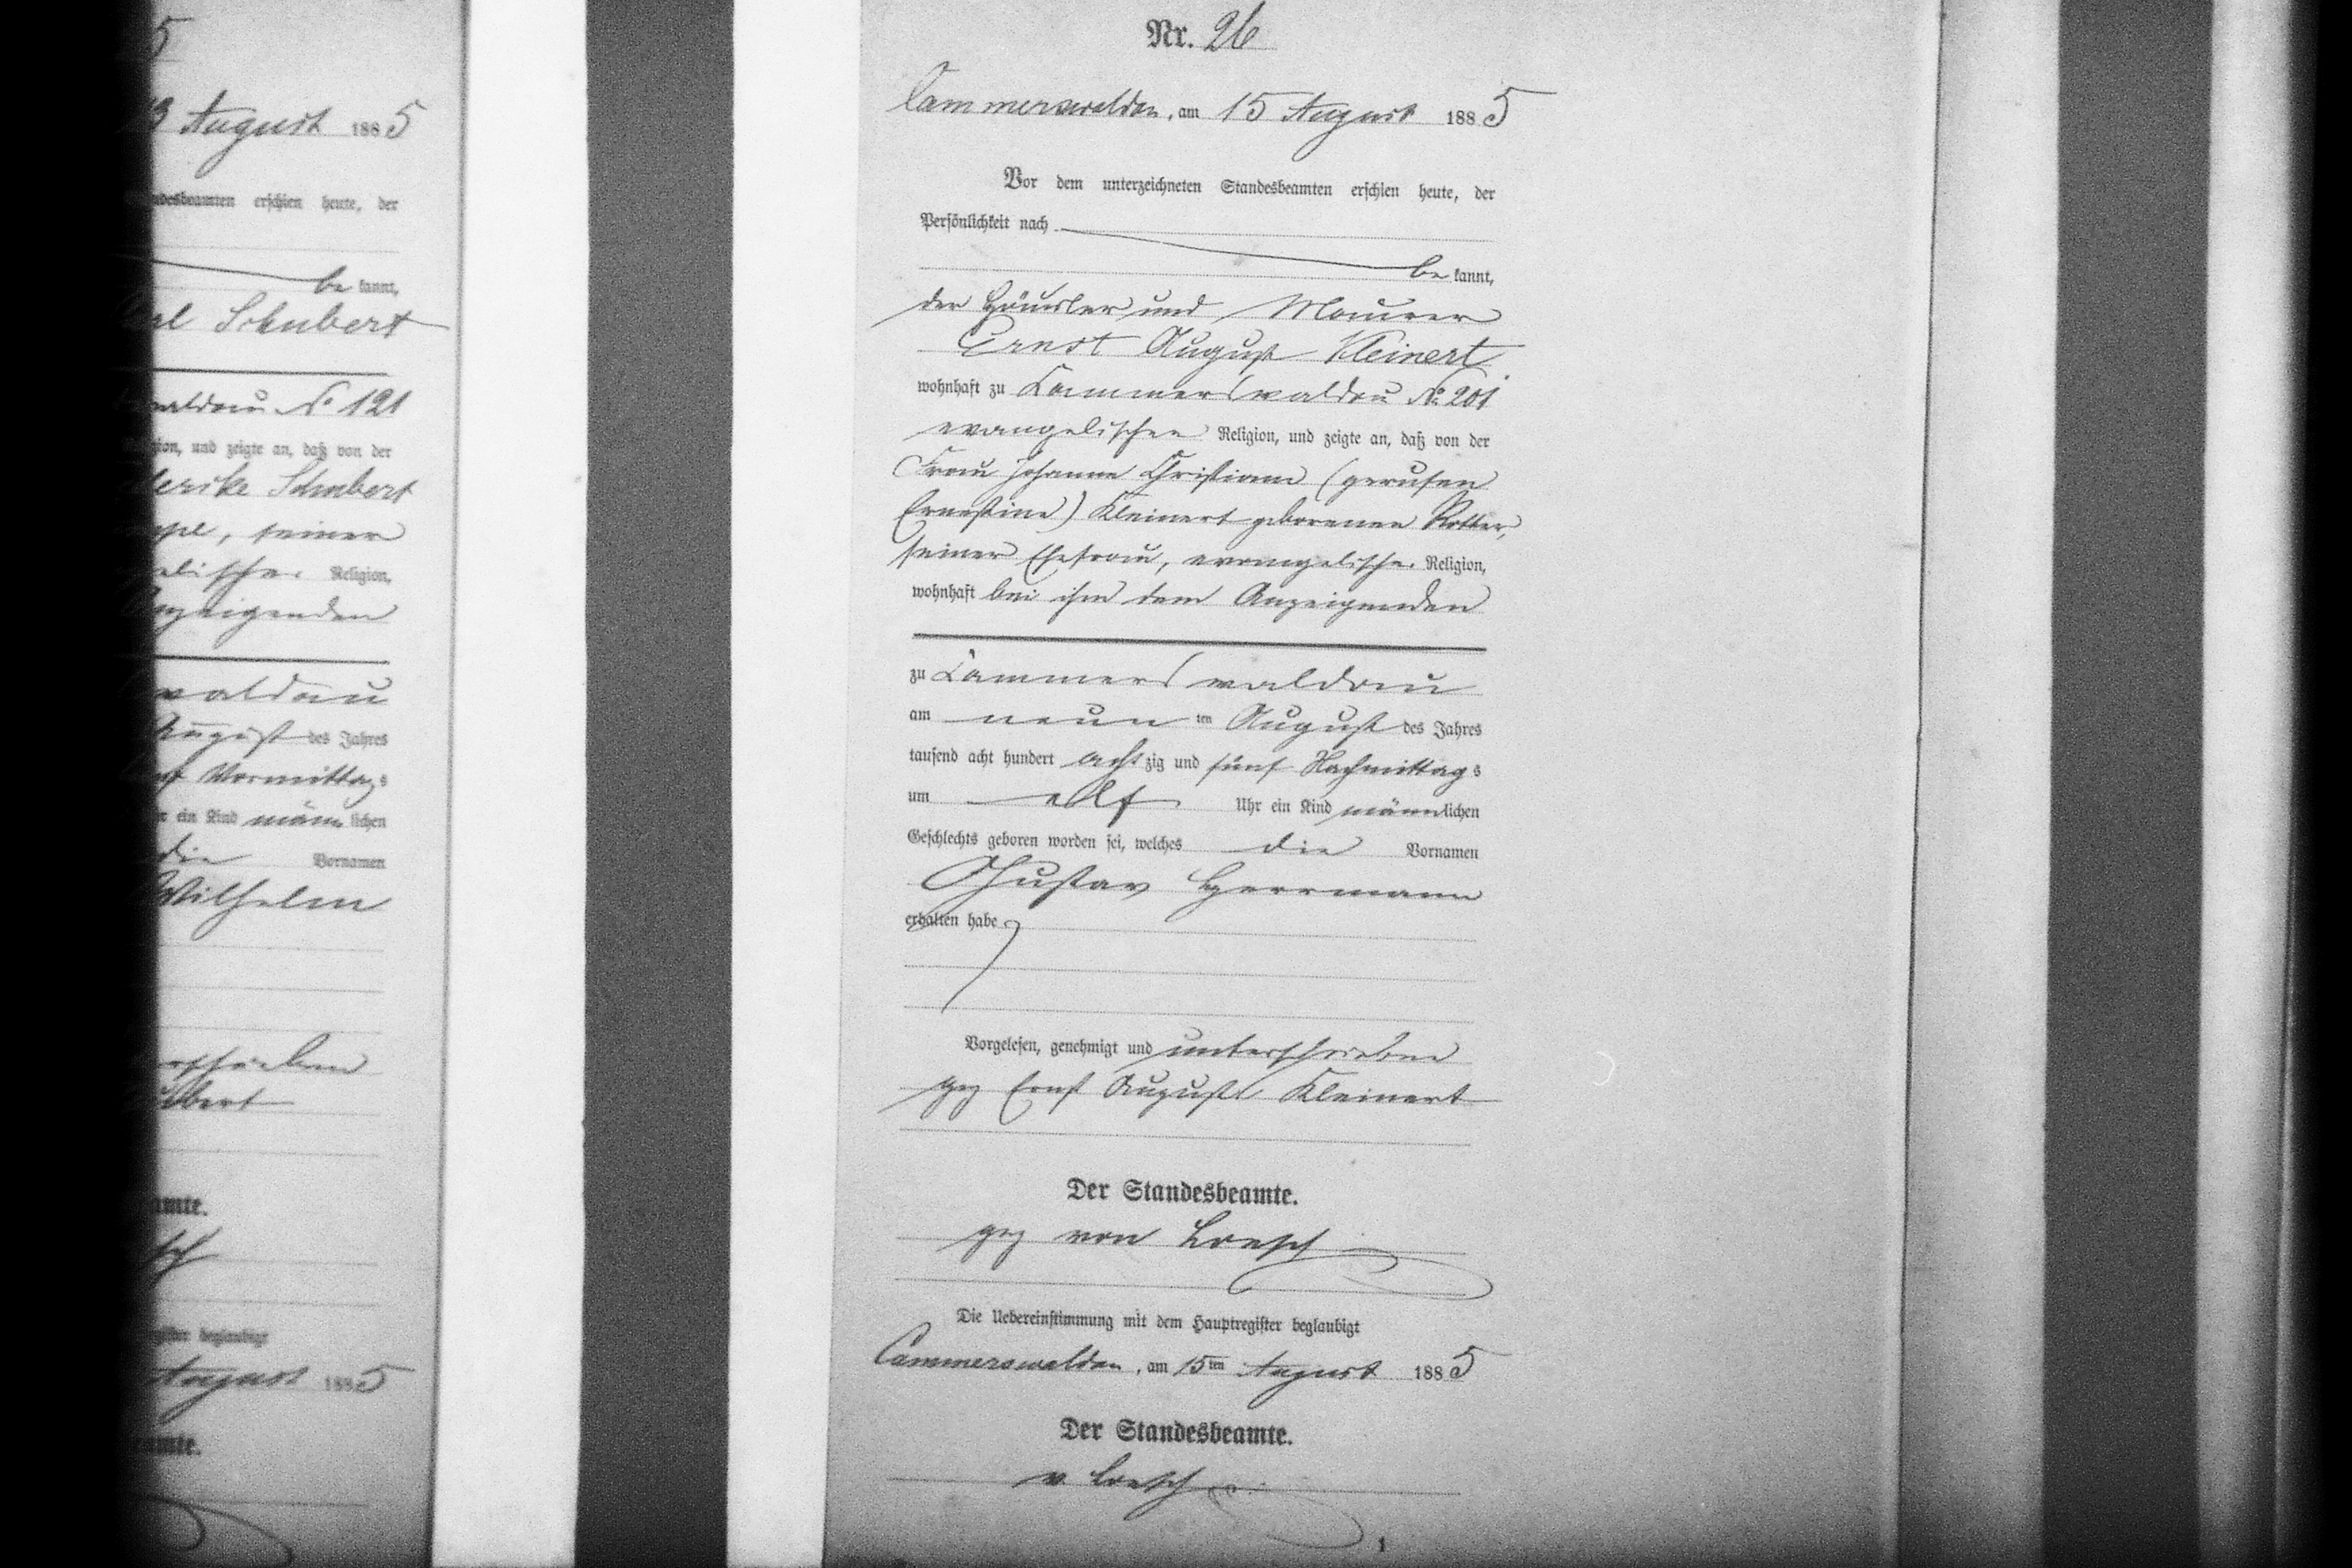 5
13 August 1885
ndesbeamten erschien heute, der
be kannt,
Carl Schubert
waldau No 121
gion, und zeigte an, daß von der
derike Schubert
seiner
elischer Religion,
Anzeigenden
waldau
August des Jahres
Vormittags
r ein Kind männlichen
die Vornamen
Wilhelm
erschrieben
ubert
amte.
sch
gister beglaubigt
August 1885
eamte.
Nr. 26
Cammerswaldau, am 15 August 1885
Vor dem unterzeichneten Standesbeamten erschien heute, der
Persönlichkeit nach
be kannt,
der Häusler und Maurer
Ernst August Kleinert
wohnhaft zu Cammerswaldau No 201
evangelischer Religion, und zeigte an, daß von der
Frau Johanne Christiane (gerufen
Ernestine) Kleinert geborenen Rotter,
seiner Ehefrau, evangelischer Religion,
wohnhaft bei ihm dem Anzeigenden
zu Cammerswaldau
am neun ten August des Jahres
tausend acht hundert acht zig und fünf Nachmittags
um elf Uhr ein Kind männlichen
Geschlechts geboren worden sei, welches die Vornamen
Gustav Herrmann
erhalten habe
Vorgelesen, genehmigt und unterschrieben
gez Ernst August Kleinert
Der Standesbeamte.
gez von Loesch
Die Uebereinstimmung mit dem Hauptregister beglaubigt
Cammerswaldau, am 15ten August 1885
Der Standesbeamte.
v. Loesch
1